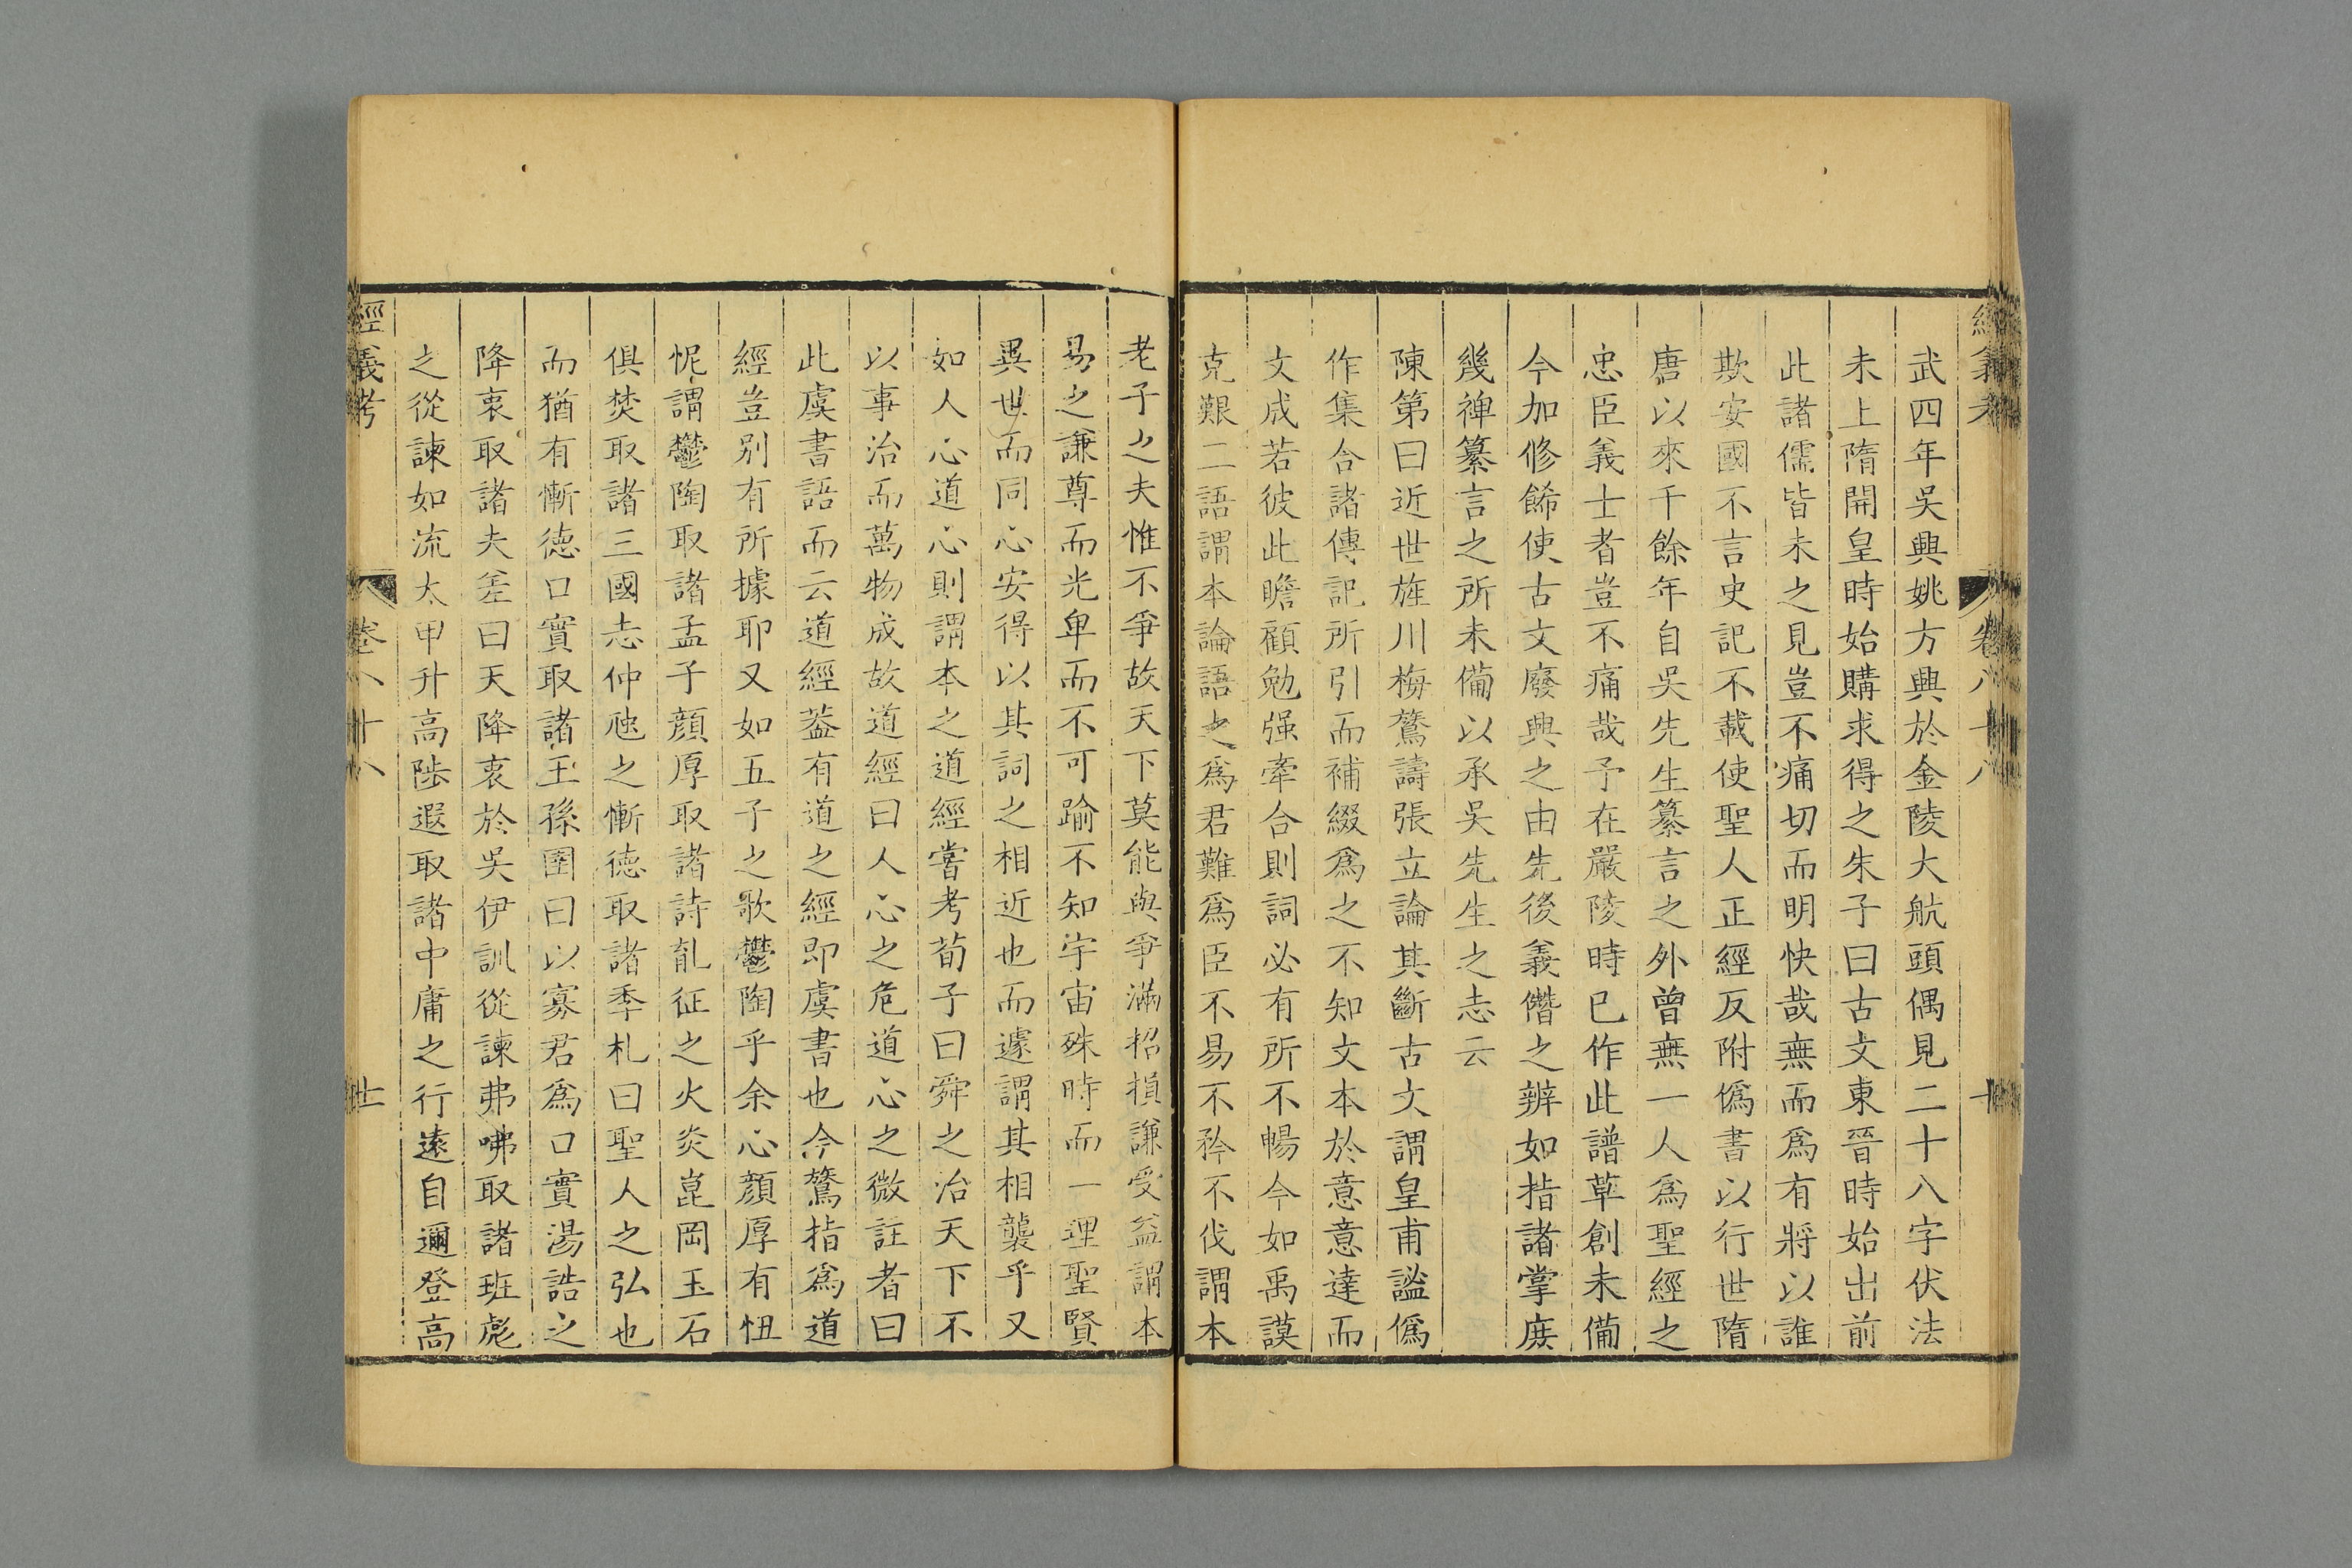 經義考 卷八十八 十
武四年吳興姚方興於金陵大航頭偶見二十八字伏法
未上隋開皇時始購求得之朱子曰古文東晉時始出前
此諸儒皆未之見豈不痛切而明快哉無而爲有將以誰
欺安國不言史記不載使聖人正經反附僞書以行世隋
唐以來千餘年自吳先生纂言之外曾無一人爲聖經之
忠臣義士者豈不痛哉予在嚴陵時已作此譜草創未備
今加修餙使古文廢興之由先後義僭之辨如指諸掌庻
幾禆纂言之所未備以承吳先生之志云
陳第曰近世旌川梅鷟譸張立論其斷古文謂皇甫謐僞
作集合諸傳記所引而補綴爲之不知文本於意意達而
文成若彼此瞻顧勉强牽合則詞必有所不暢今如禹謨
克艱二語謂本論語之爲君難爲臣不易不矜不伐謂本
老子之夫惟不爭故天下莫能與爭滿招損謙受益謂本
易之謙尊而光卑而不可踰不知宇宙殊時而一理聖賢
異世而同心安得以其詞之相近也而遽謂其相襲乎又
如人心道心則謂本之道經嘗考荀子曰舜之治天下不
以事治而萬物成故道經曰人心之危道心之微註者曰
此虞書語而云道經葢有道之經即虞書也今鷟指爲道
經豈別有所據耶又如五子之歌鬱陶乎余心顏厚有忸
怩謂鬱陶取諸孟子顏厚取諸詩胤征之火炎崑岡玉石
俱焚取諸三國志仲虺之慚德取諸季札曰聖人之弘也
而猶有慚德口實取諸王孫圉曰以寡君爲口實湯誥之
降衷取諸夫差曰天降衷於吳伊訓從諫弗咈取諸班彪
之從諫如流太甲升高陟遐取諸中庸之行遠自邇登高
經義考 卷八十八 十一